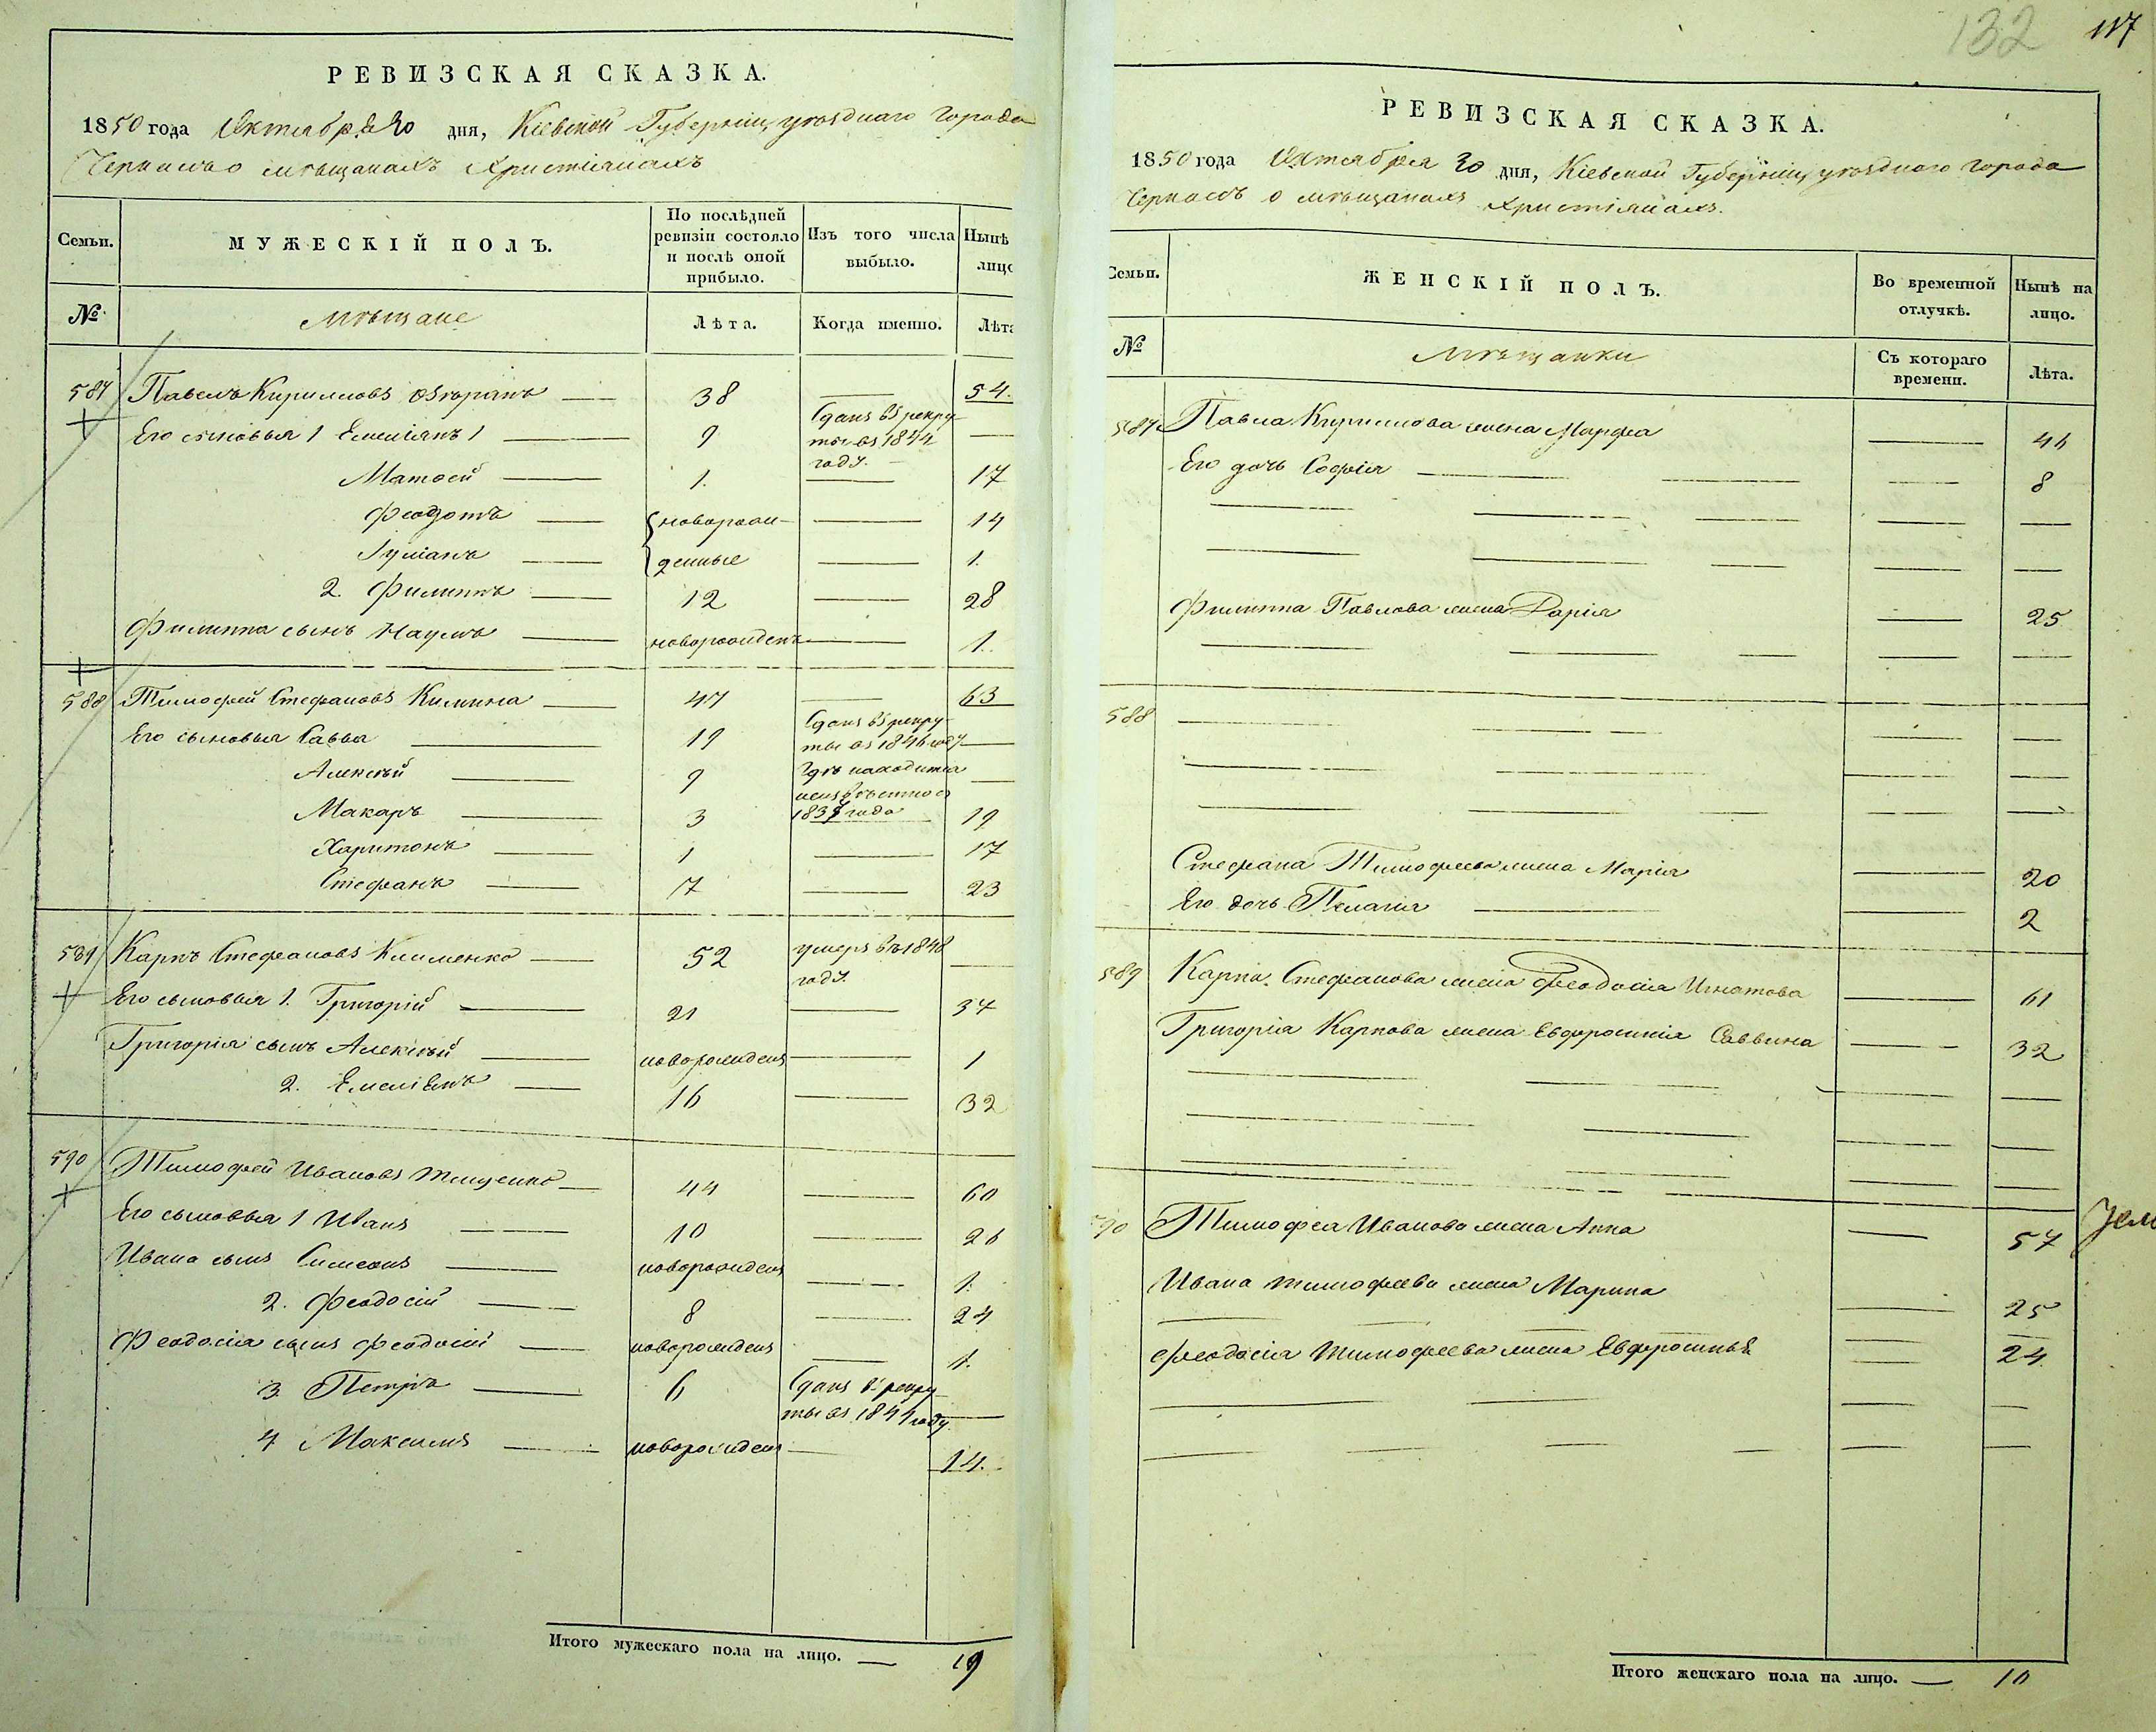 РЕВИЗСКАЯ СКАЗКА.
1850 года Октября 30 дня, Кіевской Губерніи, уѣзднаго города
Черкасъ о мѣщанахъ Христіянахъ
Семьи.
МУЖЕСКІЙ ПОЛЪ.
По послѣдней ревизіи состояло и послѣ оной прибыло.
Изъ того числа выбыло.
Нынѣ лицо
№
Мѣщане
Лѣта.
Когда именно.
Лѣта
587 Павелъ Кирилловъ 38 — 54.
Его сыновья 1 Емеліянъ 1 — 9 Сданъ въ рекру-
ты въ 1844
году. —
Матѳей — 1. — 17
Феодотъ — новорож- — 14
Іуліанъ — денные — 1.
2. Филиппъ — 12 — 28
Филиппа сынъ Наумъ — новорожденъ — 1.
588 Тимофей Стефановъ — 47 — 63
Его сыновья Савва — 19 Сданъ въ рекру-
ты въ 1846 году —
Алексѣй — 9 Гдѣ находится
неизвѣстно съ
1839 года
Макаръ — 3 — 19
Харитонъ — 1 — 17
Стефанъ — 7 — 23
589 Карпъ Стефановъ Клименко — 52 умеръ въ 1848
году. —
Его сыновья 1. Григорій — 21 — 37
Григорія сынъ Алексѣй — новорожденъ — 1
2. Емеліянъ — 16 — 32
590 Тимофей Ивановъ Тищенко — 44 — 60
Его сыновья 1 Иванъ — 10 — 26
Ивана сынъ Симеонъ — новорожденъ — 1.
2. Феодосій — 8 — 24
Феодосія сынъ Феодосій — новорожденъ — 1.
3. Петръ — 6 Сданъ въ рекру-
ты въ 1844 году —
4 Максимъ — новорожденъ — 14.
Итого мужескаго пола на лицо. — 19
132 117
РЕВИЗСКАЯ СКАЗКА.
1850 года Октября 30 дня, Кіевской Губерніи, уѣзднаго города
Черкасъ о мѣщанахъ Христіянахъ.
Семьи.
ЖЕНСКІЙ ПОЛЪ.
Во временной отлучкѣ.
Нынѣ на лицо.
№
Мѣщанки
Съ котораго времени.
Лѣта.
587 Павла Кириллова жена Марфа — 46
Его дочь Софія — 8
Филиппа Павлова жена Дарія — 25
588
Стефана Тимофеева жена Марія — 20
Его дочь Пелагія — 2
589 Карпа Стефанова жена Феодосія Игнатова — 61
Григорія Карпова жена Евфросинія Саввина — 32
590 Тимофея Иванова жена Анна — 57
Ивана Тимофеева жена Марина — 25
Феодосія Тимофеева жена Евфросинья — 24.
Итого женскаго пола на лицо. — 10